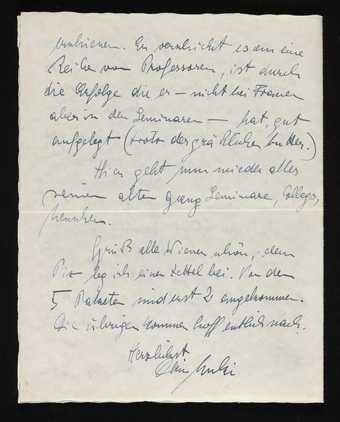 erschienen. Er verkehrt
Reihe von Professoren, ist durch
die Erfolge die er — nicht bei Frauen
aber in den Seminaren — hat, gut
aufgelegt (trotz der gräßlichen Butter.)
Hier geht nun wieder alles
seinen alten Gang Seminare, Colleges,
Gruß alle Wiener schön, dem
leg ich einen Zettel bei. Von den
5 Paketen sind erst 2 angekommen.
Die übrigen kommen hoffentlich nach.
Herzlichst
Dein